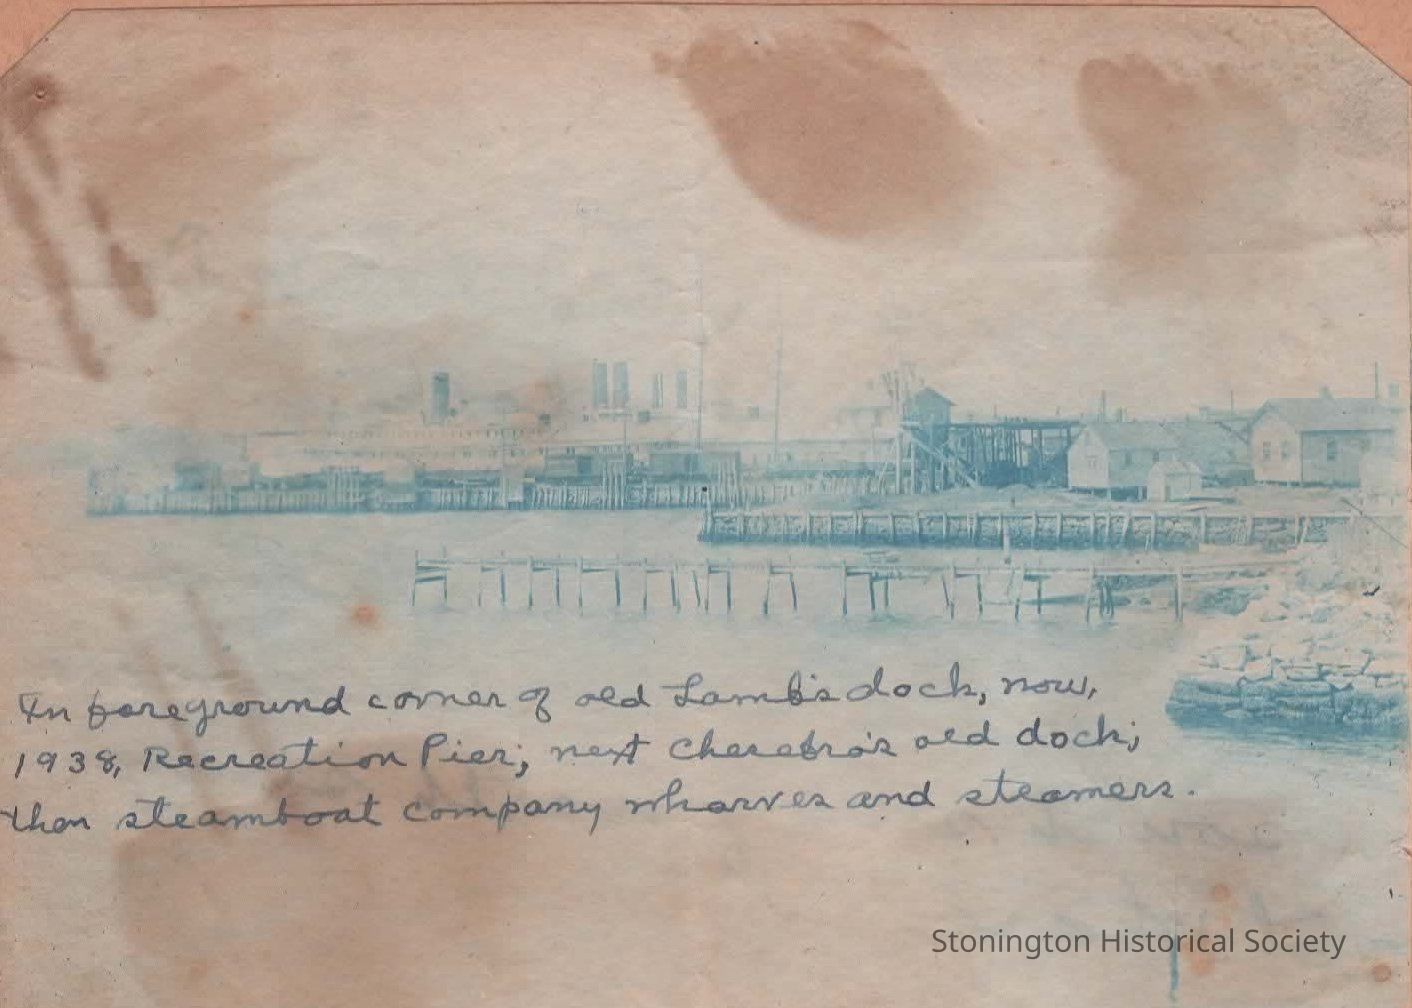 In foreground corner of old Lamb's dock, now,
1938, Recreation Pier; next Chesebro's old dock;
then steamboat company wharves and steamers.
Stonington Historical Society